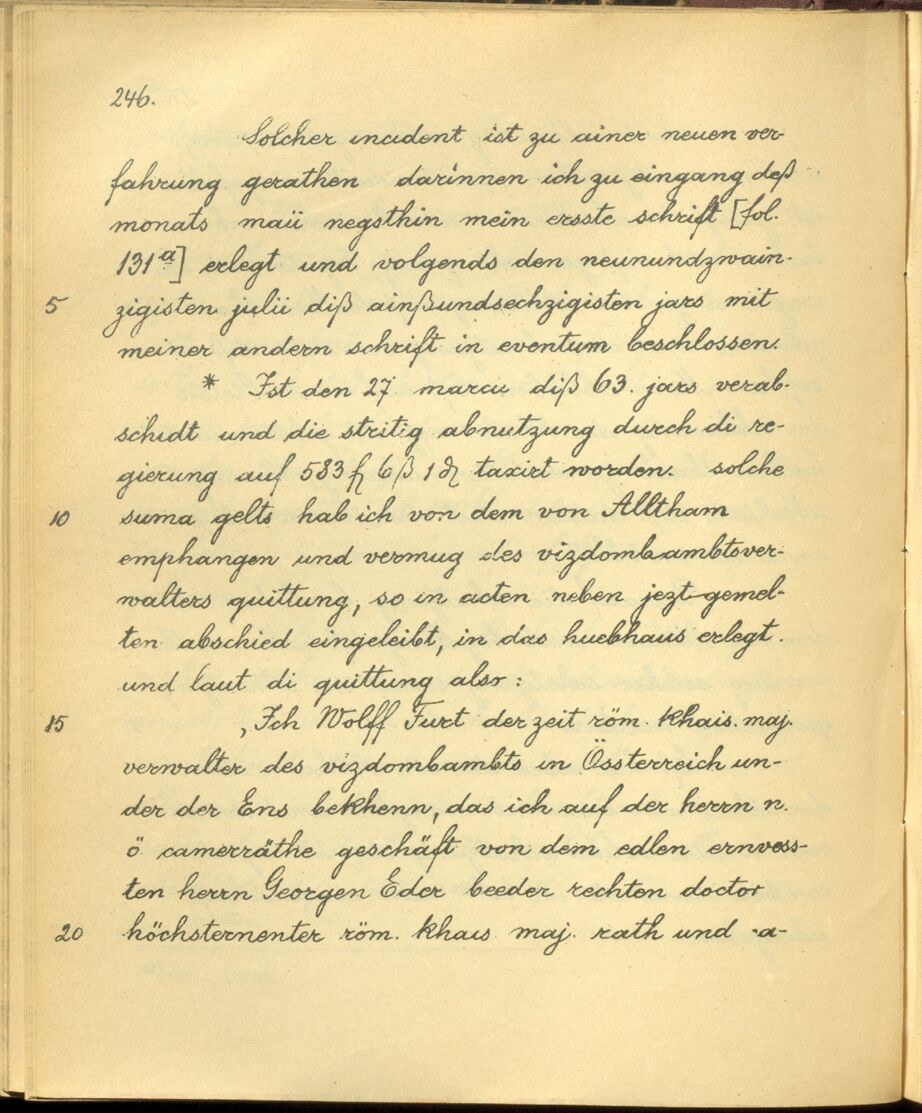 246.
Solcher incident ist zu ainer neuen ver-
fahrung gerathen darinnen ich zu eingang deß
monats maii negsthin mein ersste schrift [fol.
131ᵃ] erlegt und volgends den neunundzwain-
5 zigisten julii diß ainßundsechzigisten jars mit
meiner andern schrift in eventum beschlossen.
* Ist den 27 marcii diß 63. jars verab-
schidt und die stritig abnutzung durch di re-
gierung auf 583 ƒ 6 ß 1 ₰ taxirt worden. solche
10 suma gelts hab ich von dem von Alltham
emphangen und vermug des vizdombambtsver-
walters quittung, so in acten neben jezt gemel-
ten abschied eingeleibt, in das huebhaus erlegt.
und laut di quittung alsr:
15 ‚Ich Wolff Furt der zeit röm. khais. maj.
verwalter des vizdombambts in Össterreich un-
der der Ens bekhenn, das ich auf der herrn n.
ö camerräthe geschäft von dem edlen ernvess-
ten herrn Georgen Eder beeder rechten doctor
20 höchsternenter röm. khais maj. rath und -a-